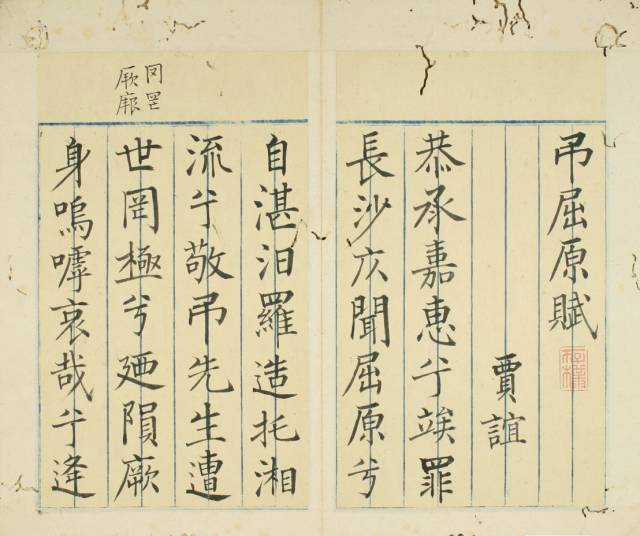 吊屈原賦
賈誼
恭承嘉惠兮竢罪
長沙仄聞屈原兮
自湛汨羅造托湘
流兮敬吊先生遭
世罔極兮廼隕厥
身嗚嘑哀哉兮逢